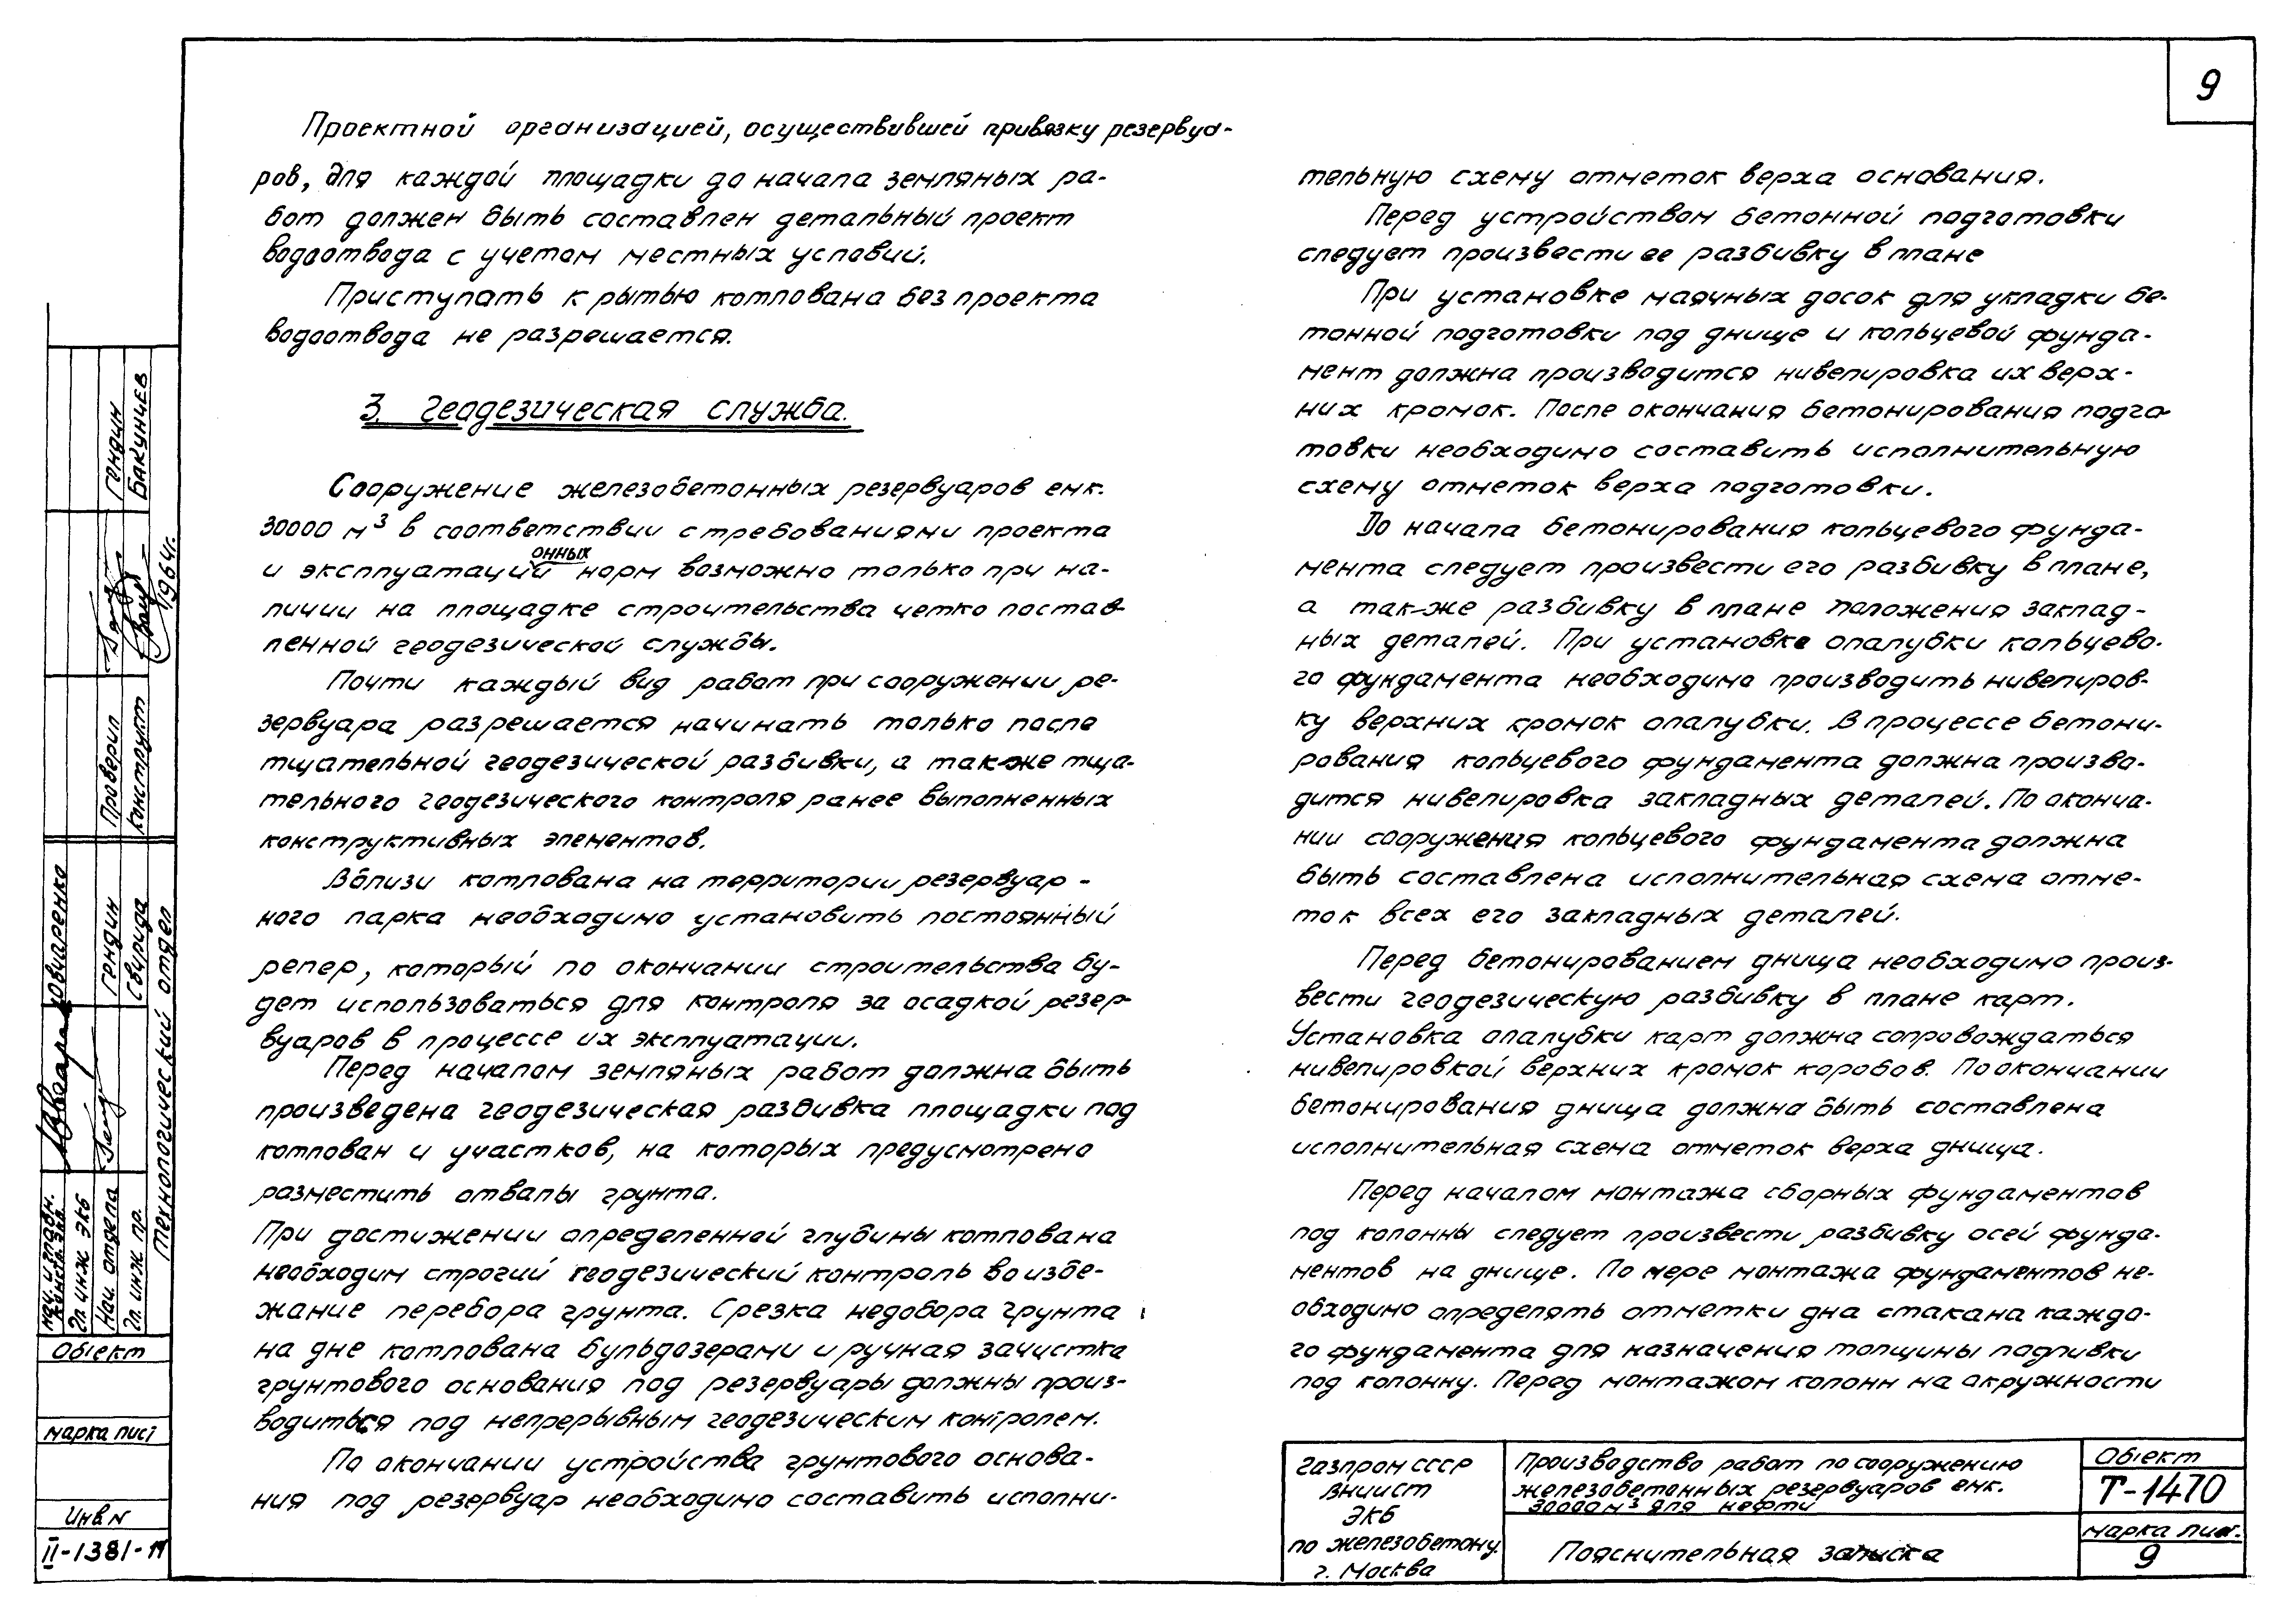 9
Проектной организацией, осуществившей привязку резервуа-
ров, для каждой площадки до начала земляных ра-
бот должен быть составлен детальный проект
водоотвода с учетом местных условий.
Приступать к рытью котлована без проекта
водоотвода не разрешается.
3. Геодезическая служба.
Сооружение железобетонных резервуаров емк.
30000 м³ в соответствии с требованиями проекта
онных
и эксплуатаций норм возможно только при на-
личии на площадке строительства четко постав-
ленной геодезической службы.
Почти каждый вид работ при сооружении ре-
зервуара разрешается начинать только после
тщательной геодезической разбивки, а так-же тща-
тельного геодезического контроля ранее выполненных
конструктивных элементов.
Вблизи котлована на территории резервуар-
ного парка необходимо установить постоянный
репер, который по окончании строительства бу-
дет использоваться для контроля за осадкой резер-
вуаров в процессе их эксплуатации.
Перед началом земляных работ должна быть
произведена геодезическая разбивка площадки под
котлован и участков, на которых предусмотрено
разместить отвалы грунта.
При достижении определенной глубины котлована
необходим строгий геодезический контроль во избе-
жание перебора грунта. Срезка недобора грунта
на дне котлована бульдозерами и ручная зачистка
грунтового основания под резервуары должны произ-
водиться под непрерывным геодезическим контролем.
По окончании устройства грунтового основа-
ния под резервуар необходимо составить исполни-
тельную схему отметок верха основания.
Перед устройством бетонной подготовки
следует произвести ее разбивку в плане
При установке маячных досок для укладки бе-
тонной подготовки под днище и кольцевой фунда-
мент должна производится нивелировка их верх-
них кромок. После окончания бетонирования подго-
товки необходимо составить исполнительную
схему отметок верха подготовки.
До начала бетонирования кольцевого фунда-
мента следует произвести его разбивку в плане,
а так-же разбивку в плане положения заклад-
ных деталей. При установке опалубки кольцево-
го фундамента необходимо производить нивелиров-
ку верхних кромок опалубки. В процессе бетони-
рования кольцевого фундамента должна произво-
дится нивелировка закладных деталей. По оконча-
нии сооружения кольцевого фундамента должна
быть составлена исполнительная схема отме-
ток всех его закладных деталей.
Перед бетонированием днища необходимо произ-
вести геодезическую разбивку в плане карт.
Установка опалубки карт должна сопровождаться
нивелировкой верхних кромок коробов. По окончании
бетонирования днища должна быть составлена
исполнительная схема отметок верха днища.
Перед началом монтажа сборных фундаментов
под колонны следует произвести разбивку осей фунда-
ментов на днище. По мере монтажа фундаментов не-
обходимо определять отметки дна стакана каждо-
го фундамента для назначения толщины подливки
под колонну. Перед монтажом колонн на окружности
Газпром СССР
ВНИИСТ
ЭКБ
по железобетону
г. Москва
Производство работ по сооружению
железобетонных резервуаров емк.
30000 м³ для нефти
Пояснительная записка
Объект
Т-1470
марка лист.
9
Гендин
Бакунцев
1964г.
Проверил
Конструкт
Гендин
Свирида
Технологический отдел
Гл инж ЭКБ
Нач. отдела
Гл. инж пр.
Объект
марка лист
Инв N
II-1381-11